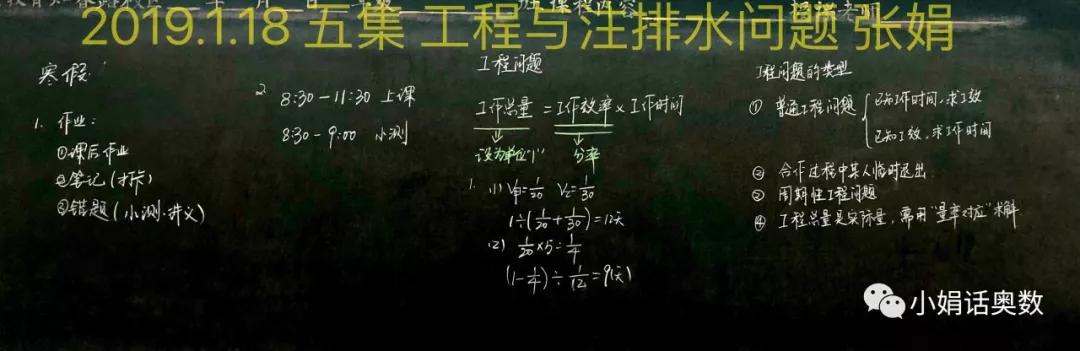 2019.1.18 五集 工程与注排水问题 张娟
寒假:
1. 作业:
①课后作业
②笔记(打卡)
③错题(小测.讲义)
2. 8:30-11:30 上课
8:30-9:00 小测
工程问题
工作总量=工作效率×工作时间
设为单位"1" 分率
1. (1) V甲=1/20 V乙=1/30
1÷(1/20+1/30)=12天
(2) 1/20×5=1/4
(1-1/4)÷1/12=9(天)
工程问题的类型
① 普通工程问题
已知工作时间,求工效
已知工效,求工作时间
② 合作过程中某人临时退出
② 周期性工程问题
④ 工程总量是实际量,需用"量率对应"求解
小娟话奥数